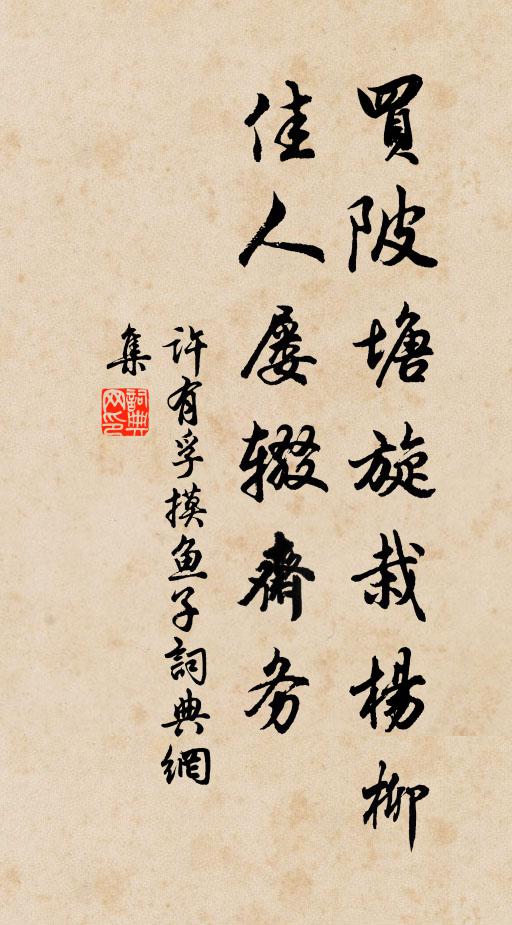 買陂塘旋栽楊柳
佳人屡辍齋务
許有孚摸鱼子詞典網
集
詞典网印